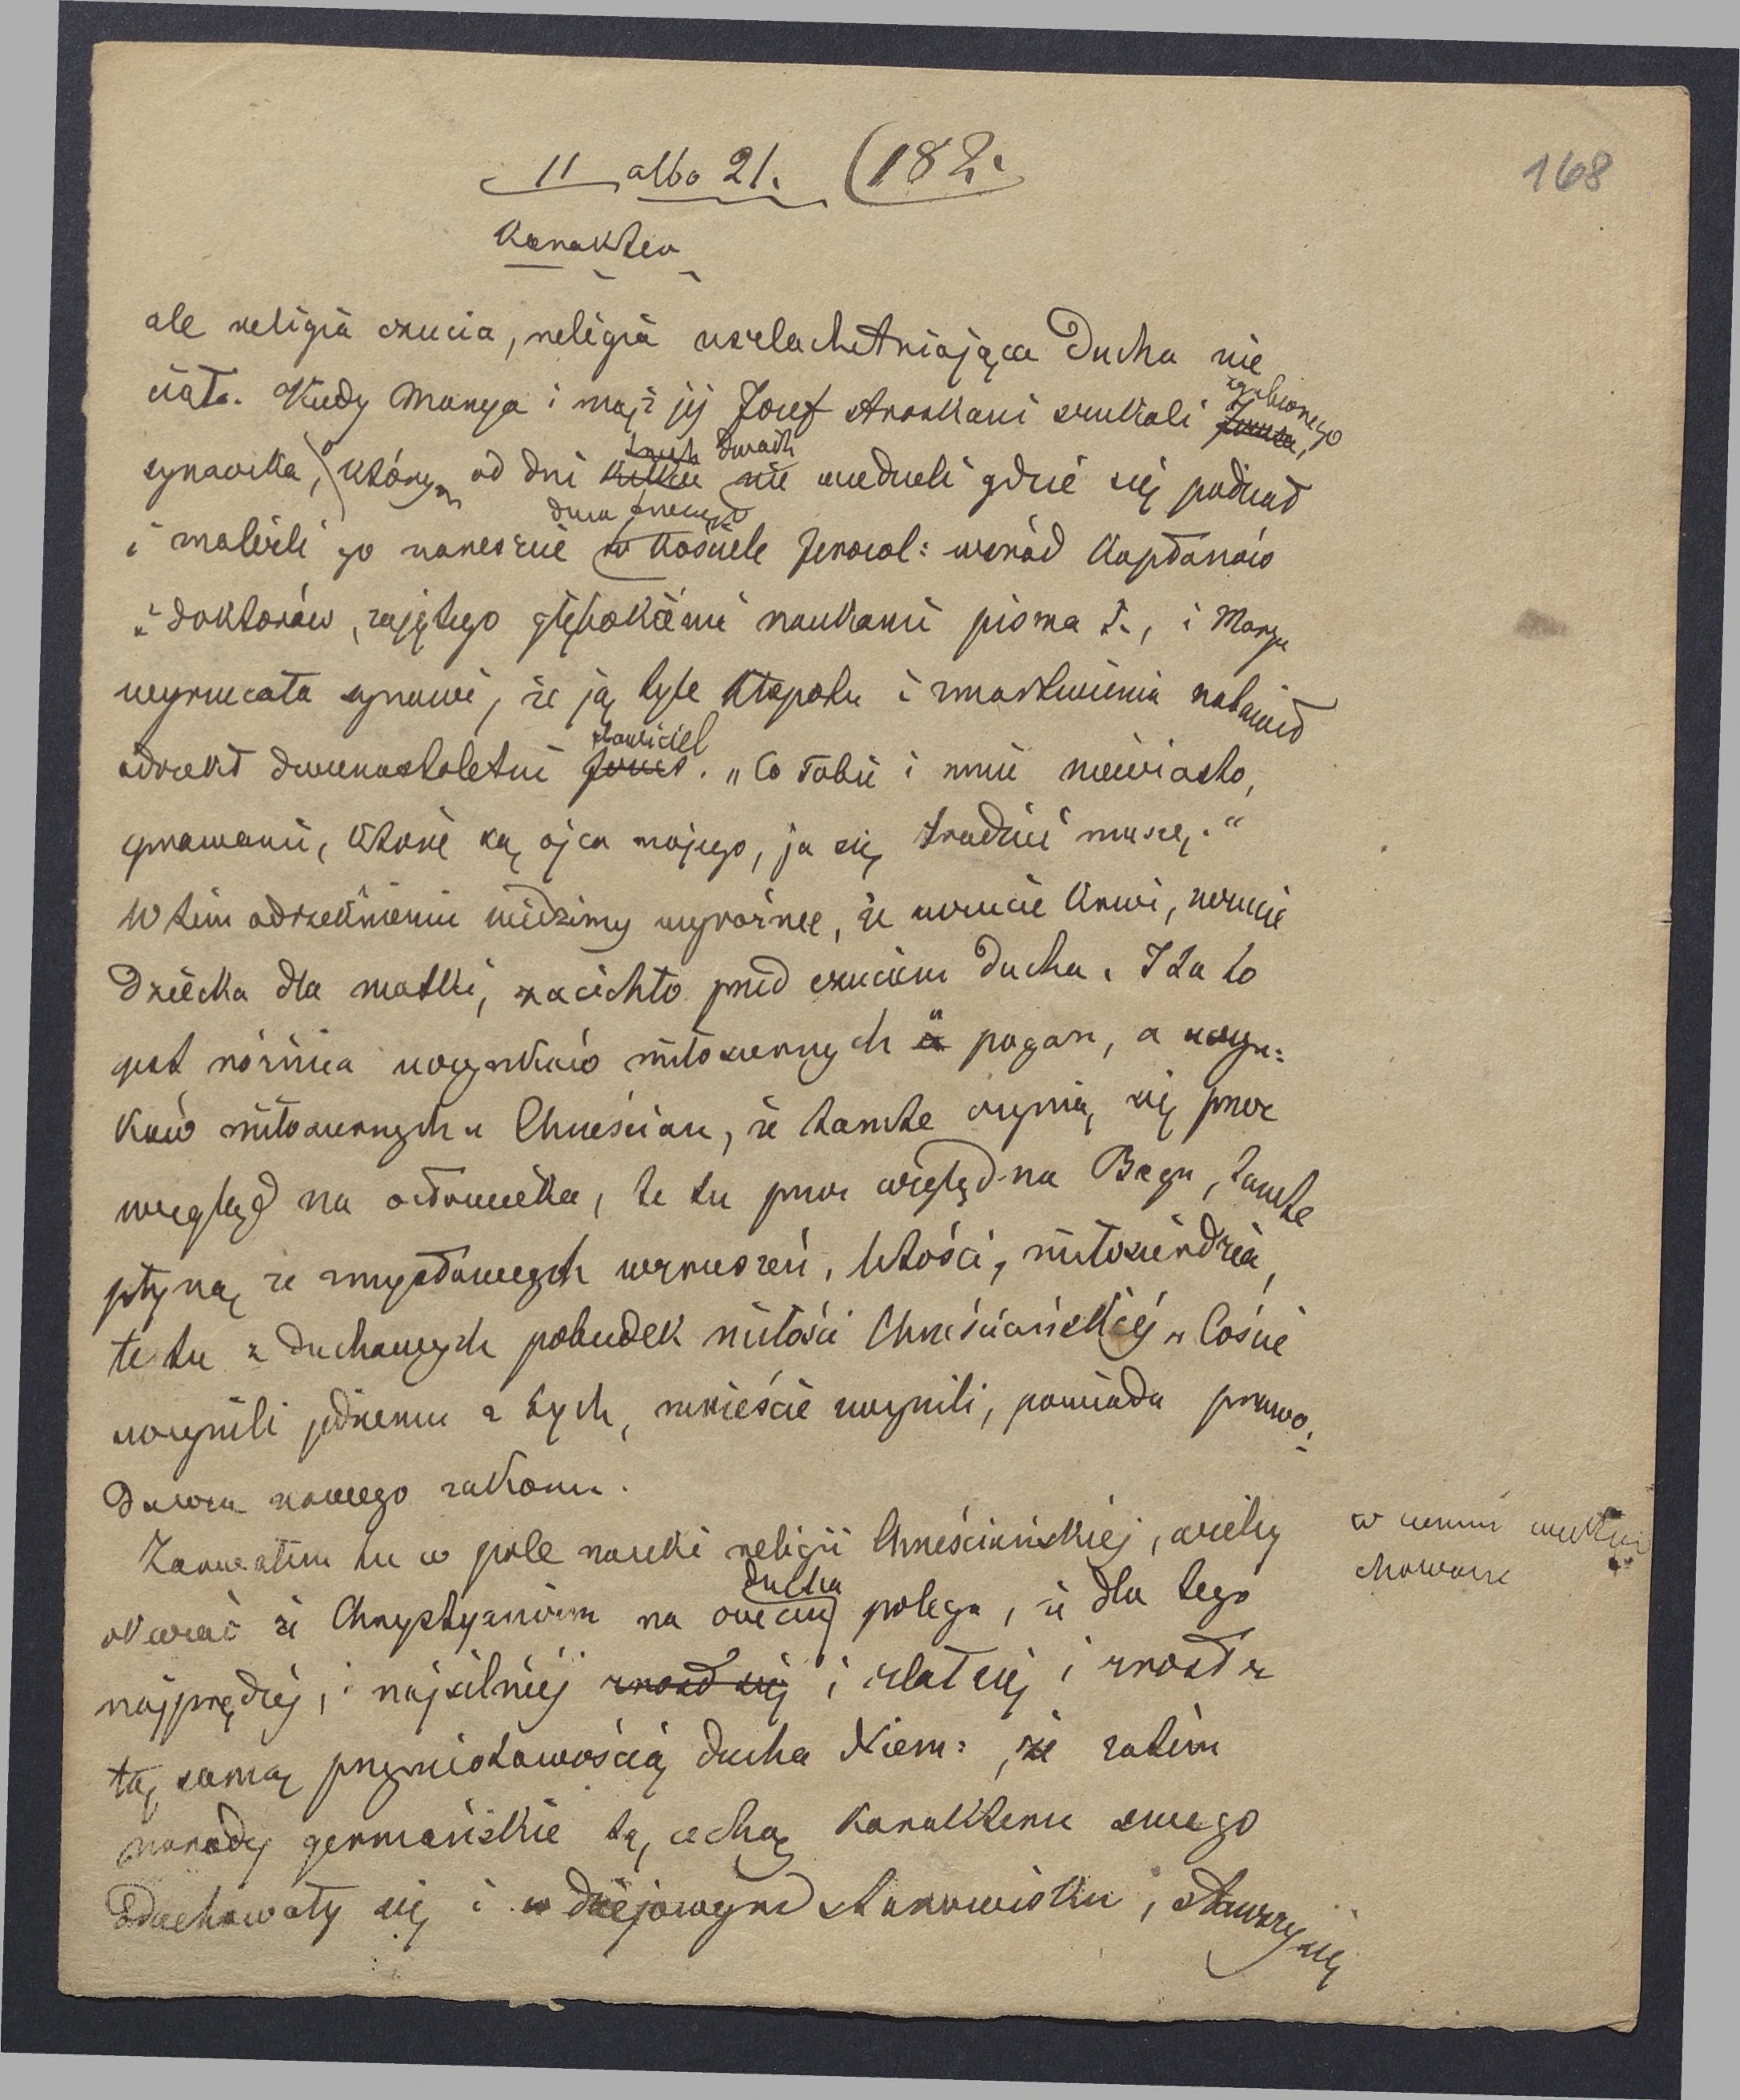 11 albo 21. (182.
168
Karakter
ale religia czucia, religia uszlachetniająca Ducha nie
ciało. Kiedy Marya i mąż jej Józef stroskani szukali zgubionego Jezusa,
synaczka, którego od dni kilku trzech dwóch nie wiedzieli gdzie się podział
i znaleźli go nareszcie w kościele Jerozol: wśród kapłanów
i doktorów, zajętego głębokiemi naukami pisma ś., i Marya
wyrzucała synowi, że ją tyle kłopotu i zmartwienia nabawił
odrzekł dwunastoletni Jezus zbawiciel. „Co Tobie i mnie niewiasto,
sprawami, które są ojca mojego, ja się trudnić muszę."
W tém odrzeknieniu widzimy wyraźnie, że uczucie krwi, uczucie
Dziecka dla matki, zacichło przed czuciem Ducha. I ta to
jest różnica uczynków miłosiernych u pogan, a uczyn:
ków miłosiernych u Chrześcian, że tamte czynią się przez
wzgląd na człowieka, te tu przez wzgląd na Boga, tamte
płyną ze zmysłowych wzruszeń, litości, miłosierdzia,
te tu z duchowych pobudek miłości Chrześciańskiéj „Coście
uczynili jednemu z tych, mnieście uczynili, powiada prawo:
dawca nowego zakonu.
Zaszedłem tu w pole nauki religii Chrześciańskiej, ażeby
okazać że Chrystyanizm na ducha polega, że dla tego
najprędzej, i najsilniej zrosł się i zlał się i zrosł z
tą samą przymiotowością ducha Niem: , że zatém
narody germańskie tą cechą karakteru swego
Odachowały się i w dziejowym stanowisku, stawszy się
w
chowane